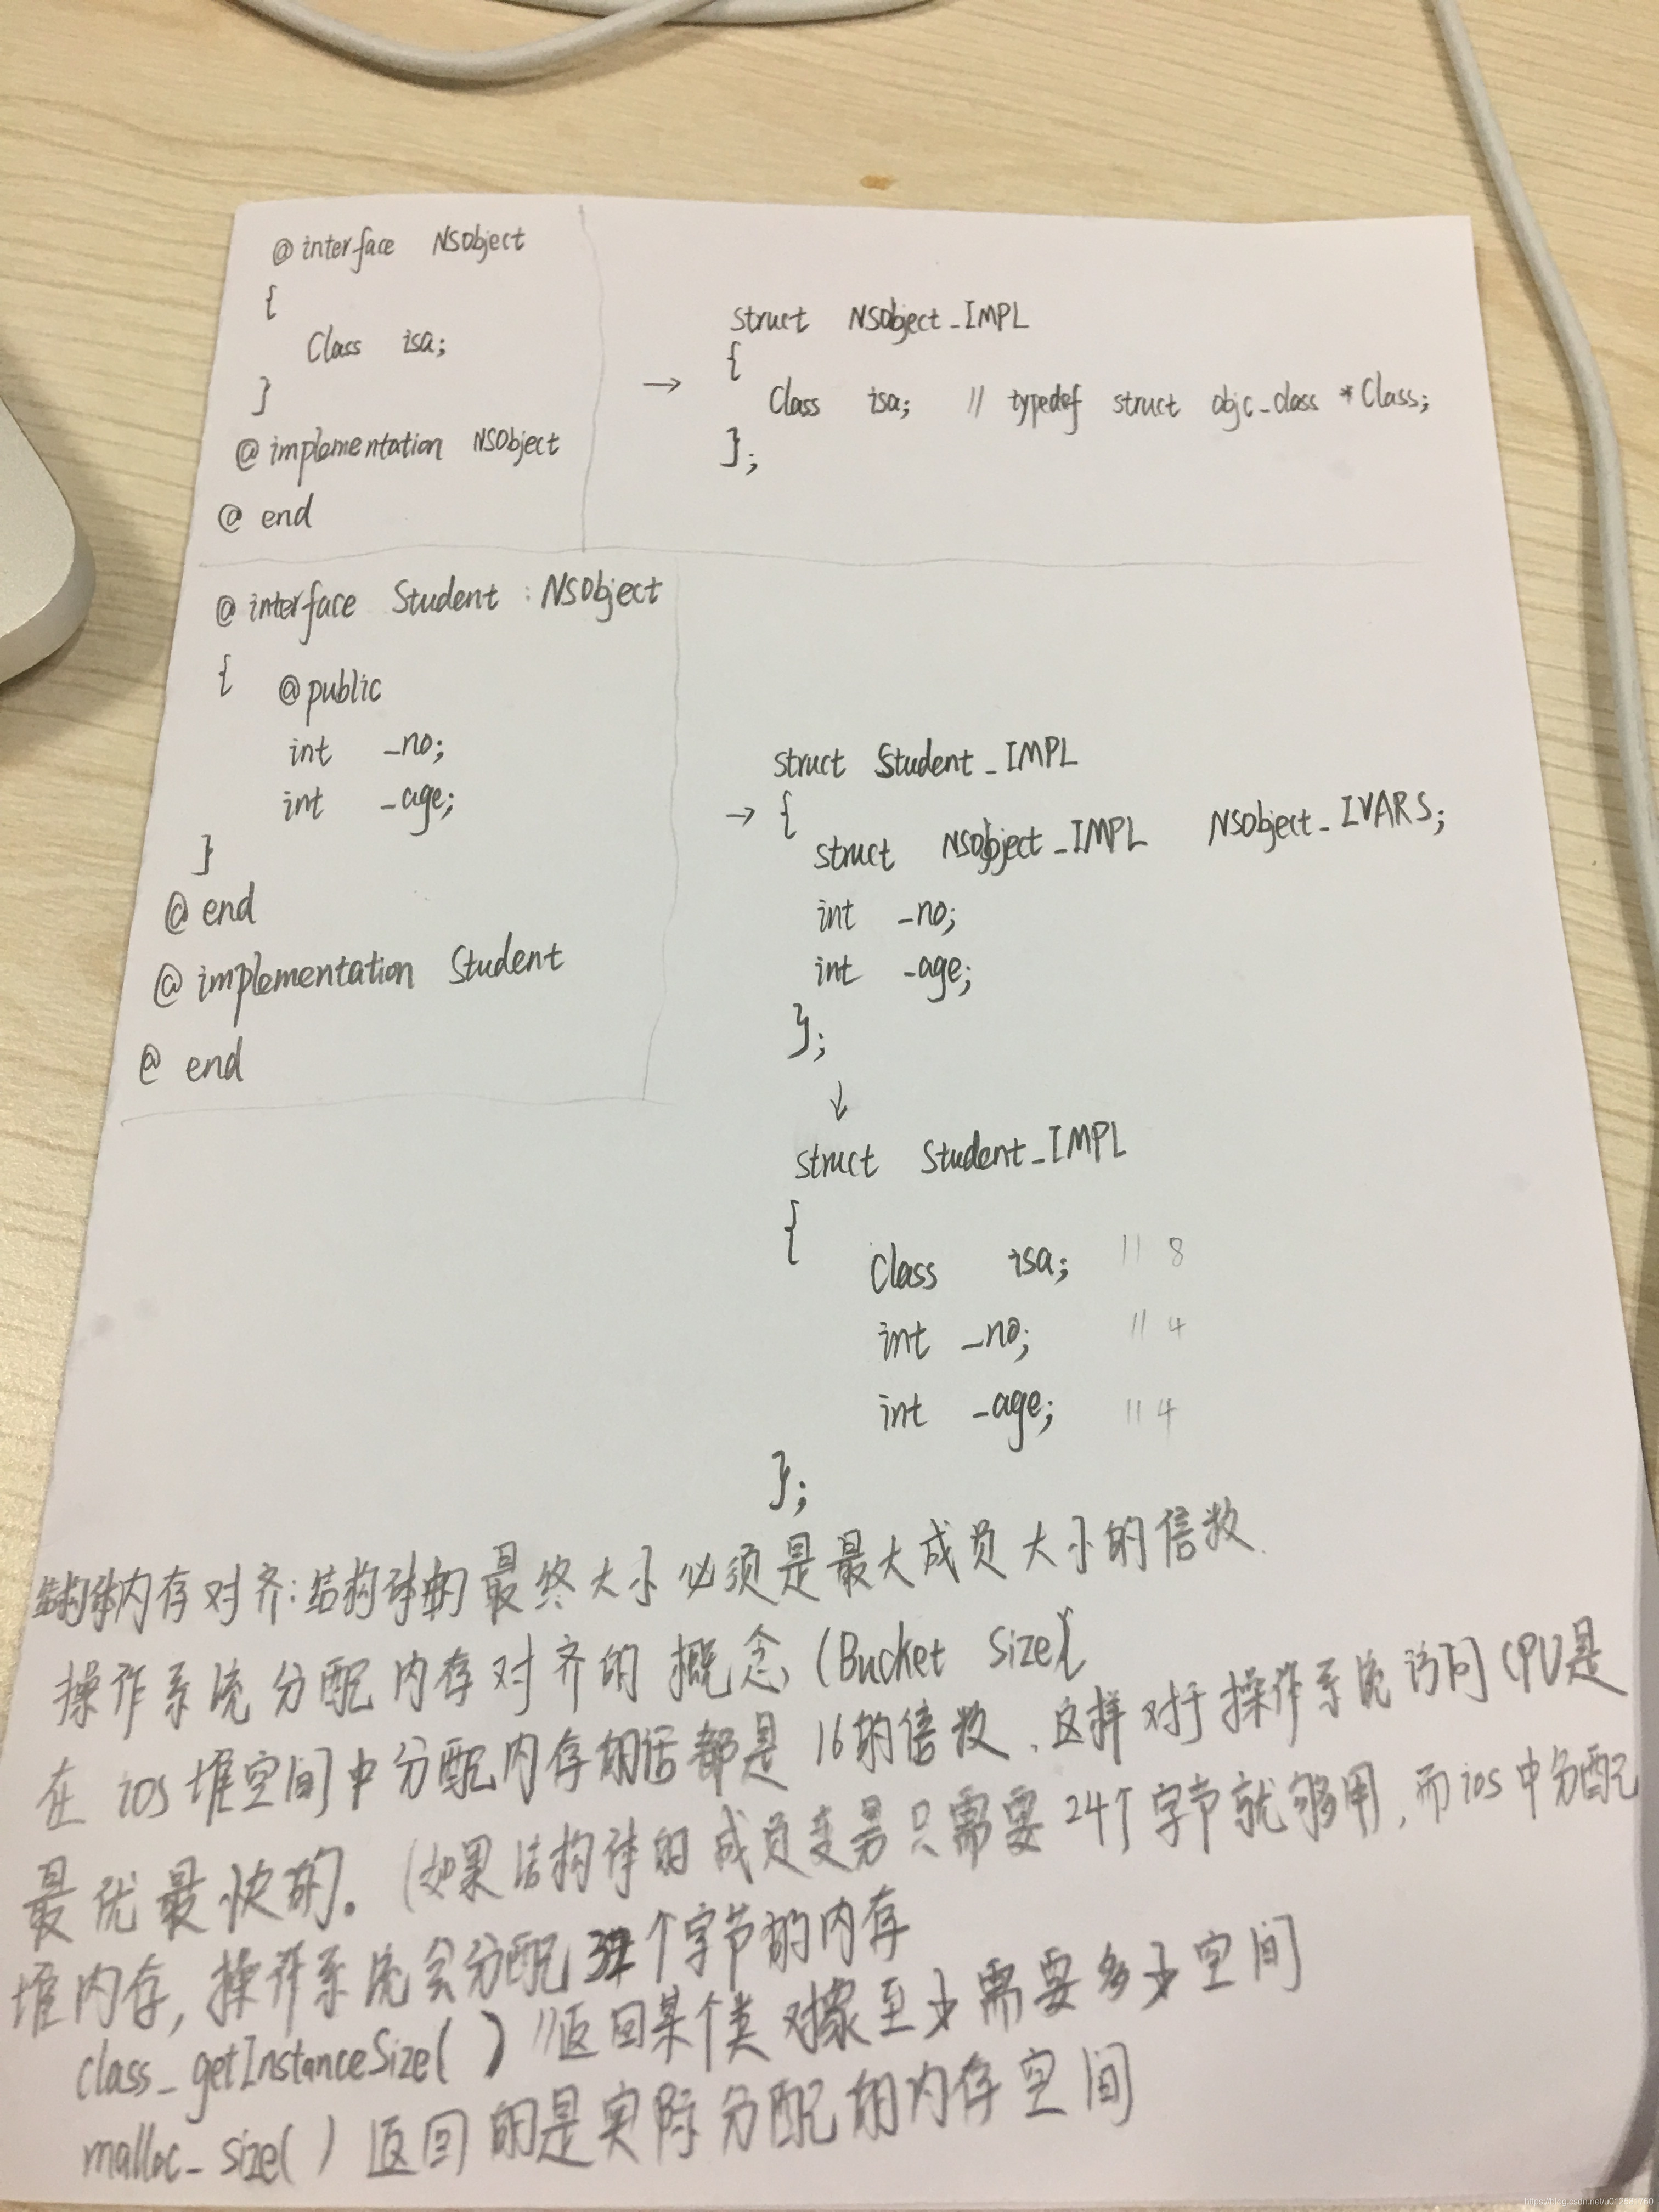 @interface NSObject
{
Class isa;
}
@implementation NSObject
@end
→
struct NSObject_IMPL
{
Class isa; // typedef struct objc_class *Class;
};
@interface Student : NSObject
{ @public
int _no;
int _age;
}
@end
@implementation Student
@end
→
struct Student_IMPL
{
struct NSObject_IMPL NSObject_IVARS;
int _no;
int _age;
};
↓
struct Student_IMPL
{
Class isa; // 8
int _no; // 4
int _age; // 4
};
结构体内存对齐:结构体的最终大小必须是最大成员大小的倍数.
操作系统分配内存对齐的概念(Bucket Size{
在ios堆空间中分配内存的话都是16的倍数、这样对于操作系统访问CPU是
最优最快的。(如果结构体的成员变量只需要24个字节就够用,而ios中分配
堆内存,操作系统会分配32个字节的内存
class_getInstanceSize() //返回某个类对象至少需要多少空间
malloc_size() 返回的是实际分配的内存空间
https://blog.csdn.net/u012581760